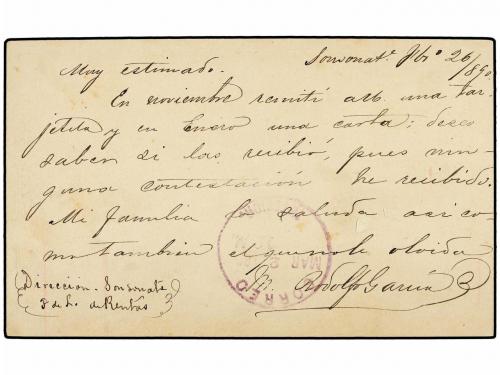 Sonsonate. Fbº 26/890.
Muy estimado.
En noviembre remití a U. una tar-
jetita y en Enero una carta: deseo
saber si las recibió, pues nin-
guna contestación he recibido.
Mi familia lo saluda así co
mo tambien el que no le olvida
Rodolfo García
Dirección. Sonsonate
de Rentas
CORREO
MAR 2